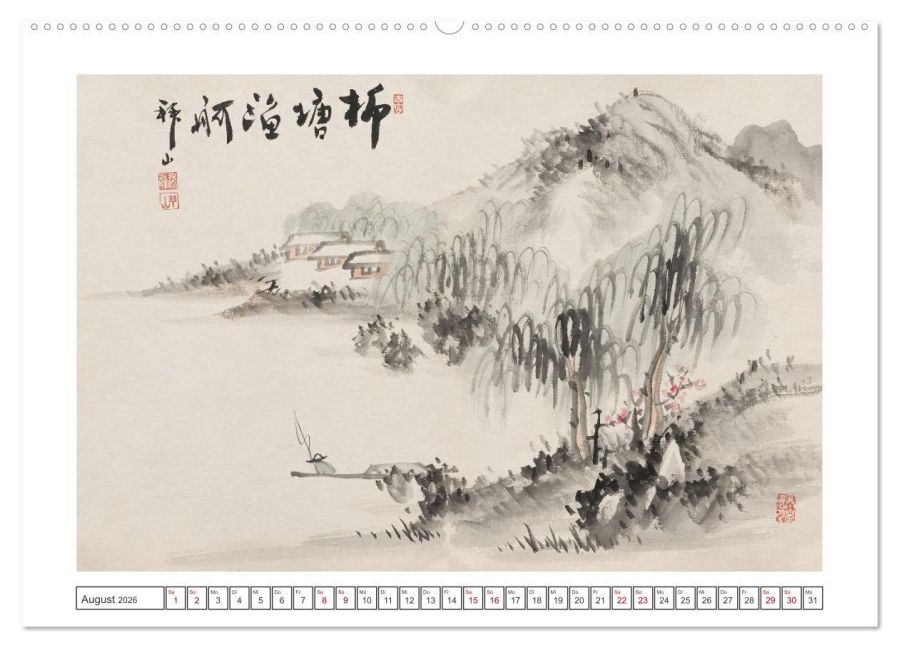 柳塘漁舸
山
Sa So Mo Di Mi Do Fr Sa So Mo Di Mi Do Fr Sa So Mo Di Mi Do Fr Sa So Mo Di Mi Do Fr Sa So Mo
August 2026 1 2 3 4 5 6 7 8 9 10 11 12 13 14 15 16 17 18 19 20 21 22 23 24 25 26 27 28 29 30 31